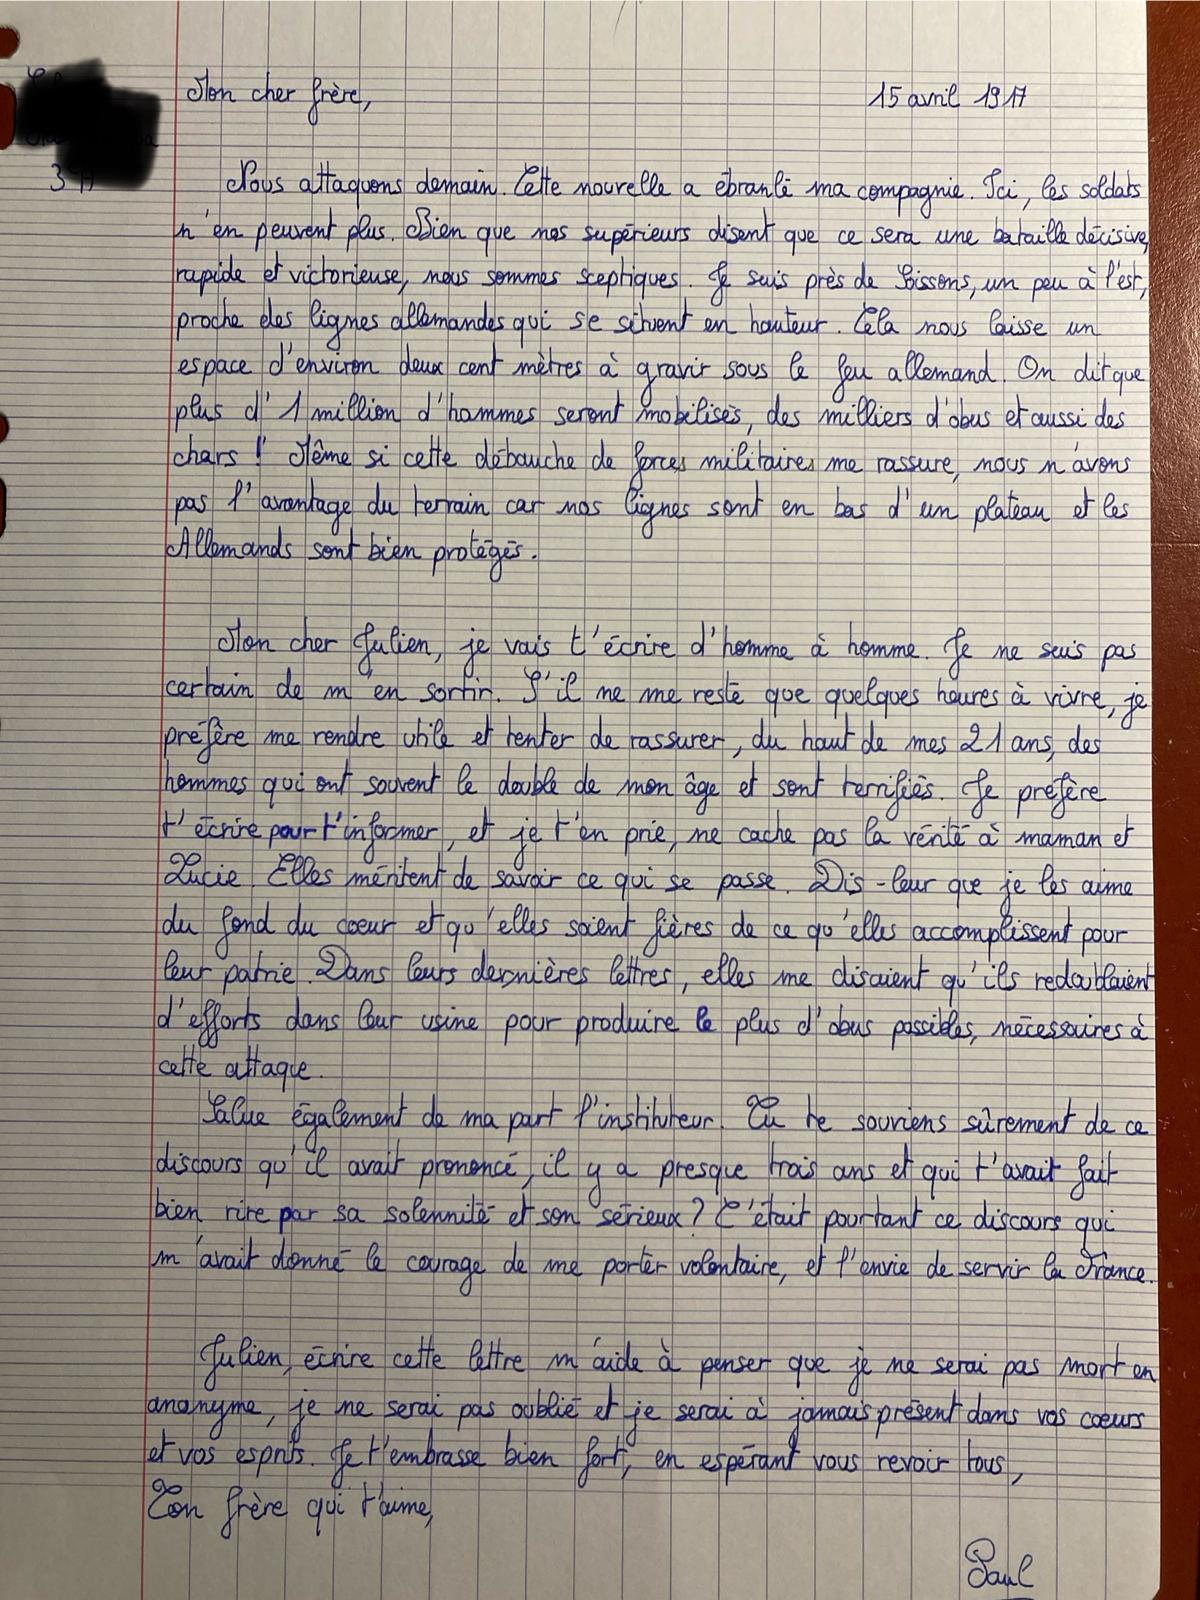 Mon cher frère,
15 avril 1917
3
Nous attaquons demain. Cette nouvelle a ébranlé ma compagnie. Ici, les soldats
n'en peuvent plus. Bien que nos supérieurs disent que ce sera une bataille décisive,
rapide et victorieuse, nous sommes sceptiques. Je suis près de Soissons, un peu à l'est,
proche des lignes allemandes qui se situent en hauteur. Cela nous laisse un
espace d'environ deux cent mètres à gravir sous le feu allemand. On dit que
plus d'1 million d'hommes seront mobilisés, des milliers d'obus et aussi des
chars ! Même si cette débauche de forces militaires me rassure, nous n'avons
pas l'avantage du terrain car nos lignes sont en bas d'un plateau et les
Allemands sont bien protégés.
Mon cher Julien, je vais t'écrire d'homme à homme. Je ne suis pas
certain de m'en sortir. S'il ne me reste que quelques heures à vivre, je
préfère me rendre utile et tenter de rassurer, du haut de mes 21 ans, des
hommes qui ont souvent le double de mon âge et sont terrifiés. Je préfère
t'écrire pour t'informer, et je t'en prie, ne cache pas la vérité à maman et
Lucie. Elles méritent de savoir ce qui se passe. Dis-leur que je les aime
du fond du coeur et qu'elles soient fières de ce qu'elles accomplissent pour
leur patrie. Dans leurs dernières lettres, elles me disaient qu'ils redoublaient
d'efforts dans leur usine pour produire le plus d'obus possibles, nécessaires à
cette attaque.
Salue également de ma part l'instituteur. Tu te souviens sûrement de ce
discours qu'il avait prononcé, il y a presque trois ans et qui t'avait fait
bien rire par sa solennité et son sérieux ? C'était pourtant ce discours qui
m'avait donné le courage de me porter volontaire, et l'envie de servir la France.
Julien, écrire cette lettre m'aide à penser que je ne serai pas mort en
anonyme, je ne serai pas oublié et je serai à jamais présent dans vos coeurs
et vos esprits. Je t'embrasse bien fort, en espérant vous revoir tous,
Ton frère qui t'aime,
Paul